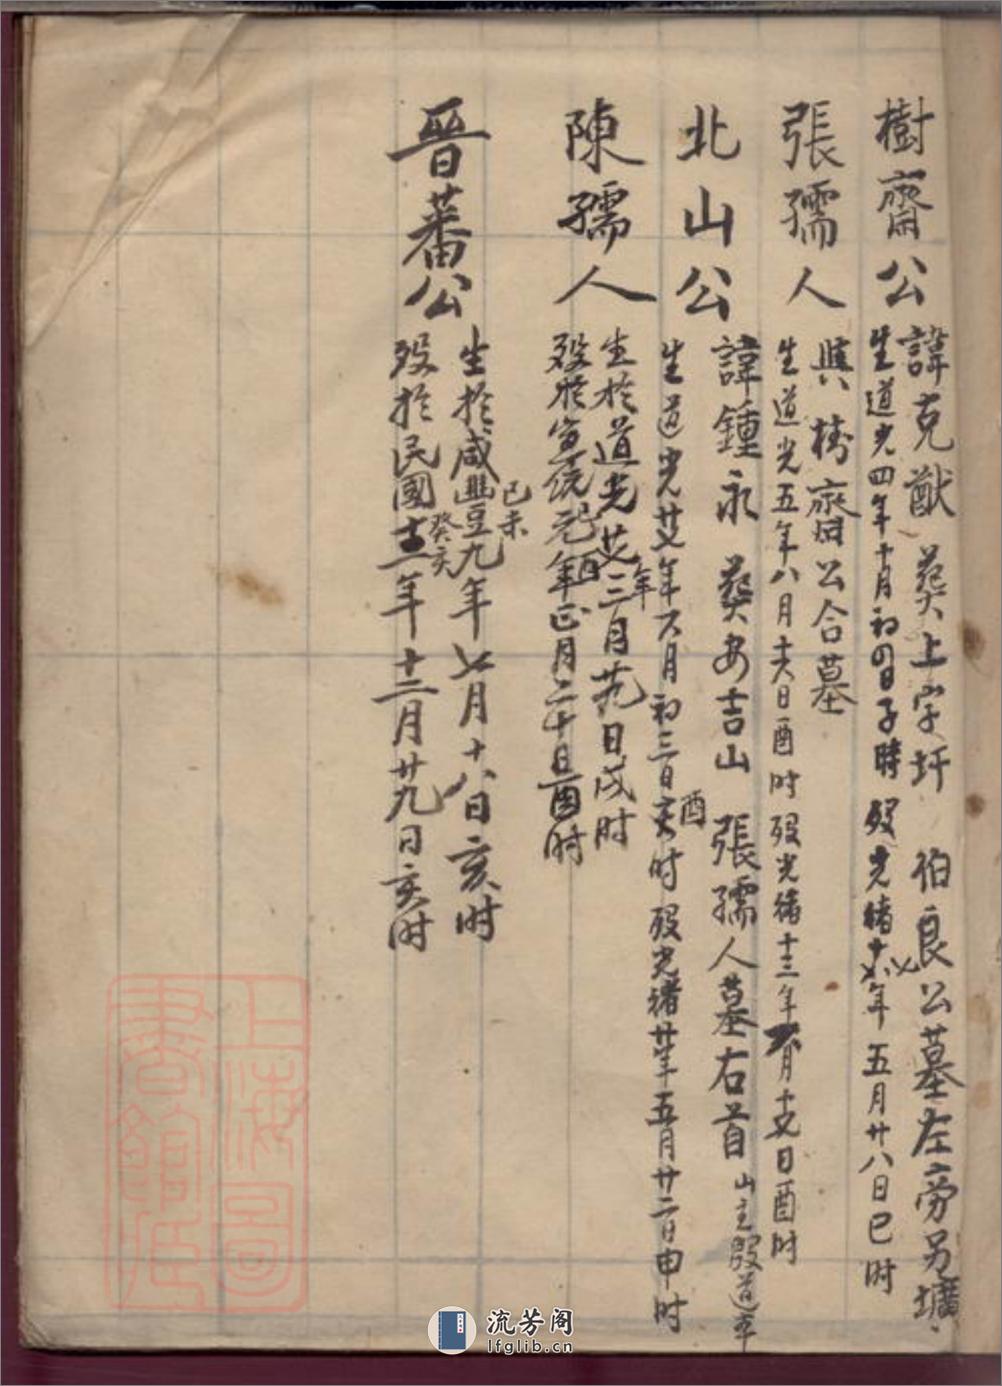 樹齋公
諱克猷 葬上字圩 伯良公墓左旁另壙
生道光四年十月初四日子時 歿光緒十七年五月廿八日巳时
張孺人
與樹齋公合墓
生道光五年八月十六日酉时 歿光緒十三年六月十七日酉时
北山公
諱鍾永 葬安吉山 張孺人墓右首 山主殷道幸
生道光廿七年六月初三日亥时 歿光緒廿年五月廿二日申时
酉
陳孺人
生於道光廿三年三月廿九日戌时
歿於宣統元年己酉正月二十日酉时
晉蕃公
生於咸豐九年己未七月十八日亥时
歿於民國十二年癸亥十二月廿九日亥时
上海圖書館藏
流芳阁
lfglib.cn